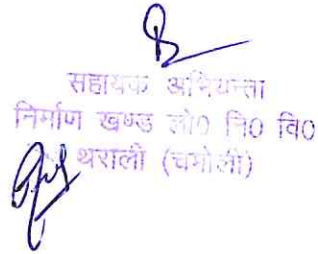 सहायक अभियन्ता
निर्माण खण्ड लो० नि० वि०
थराली (चमोली)